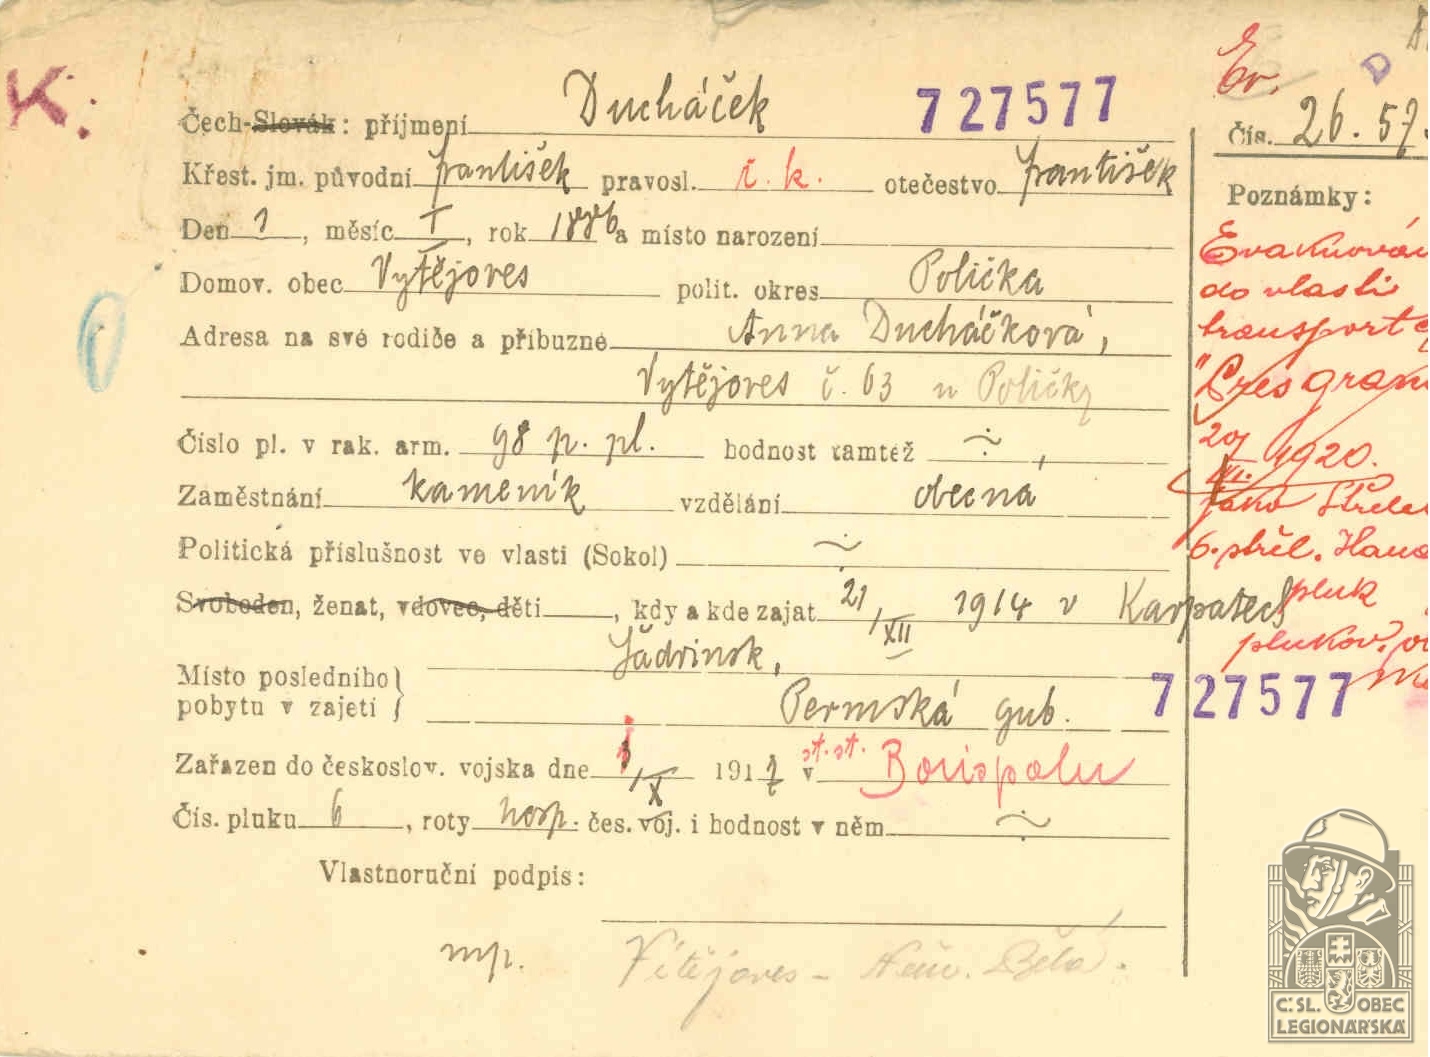 K.
Čech-Slovák: příjmení Ducháček 727577
Křest. jm. původní František pravosl. ř. k. otečestvo František
Den 1, měsíc I, rok 1886 a místo narození
Domov. obec Vytějoves polit. okres Polička
Adresa na své rodiče a příbuzné Anna Ducháčková,
Vytějoves č. 63 u Poličky
Číslo pl. v rak. arm. 98 p. pl. hodnost tamtéž ÷,
Zaměstnání kameník vzdělání obecná
Politická příslušnost ve vlasti (Sokol) ÷
Svoboden, ženat, vdovec, děti, kdy a kde zajat 21/XII 1914 v Karpatech
Místo posledního pobytu v zajetí } Šadrinsk,
Permská gub. 727577
Zařazen do českoslov. vojska dne /X 1917 st. st. v Borispolu
Čís. pluku 6, roty hosp. čes. voj. i hodnost v něm ÷
Vlastnoruční podpis:
mp. Vítějoves – Něm. Bělá.
Ev.
D
Čís. 26.57
Poznámky:
Evakuován
do vlasti
transport
"Pres Gran
20/ 1920.
jako Střele
6. střel. Hana
pluk
plukov.
Č. SL. OBEC
LEGIONÁŘSKÁ